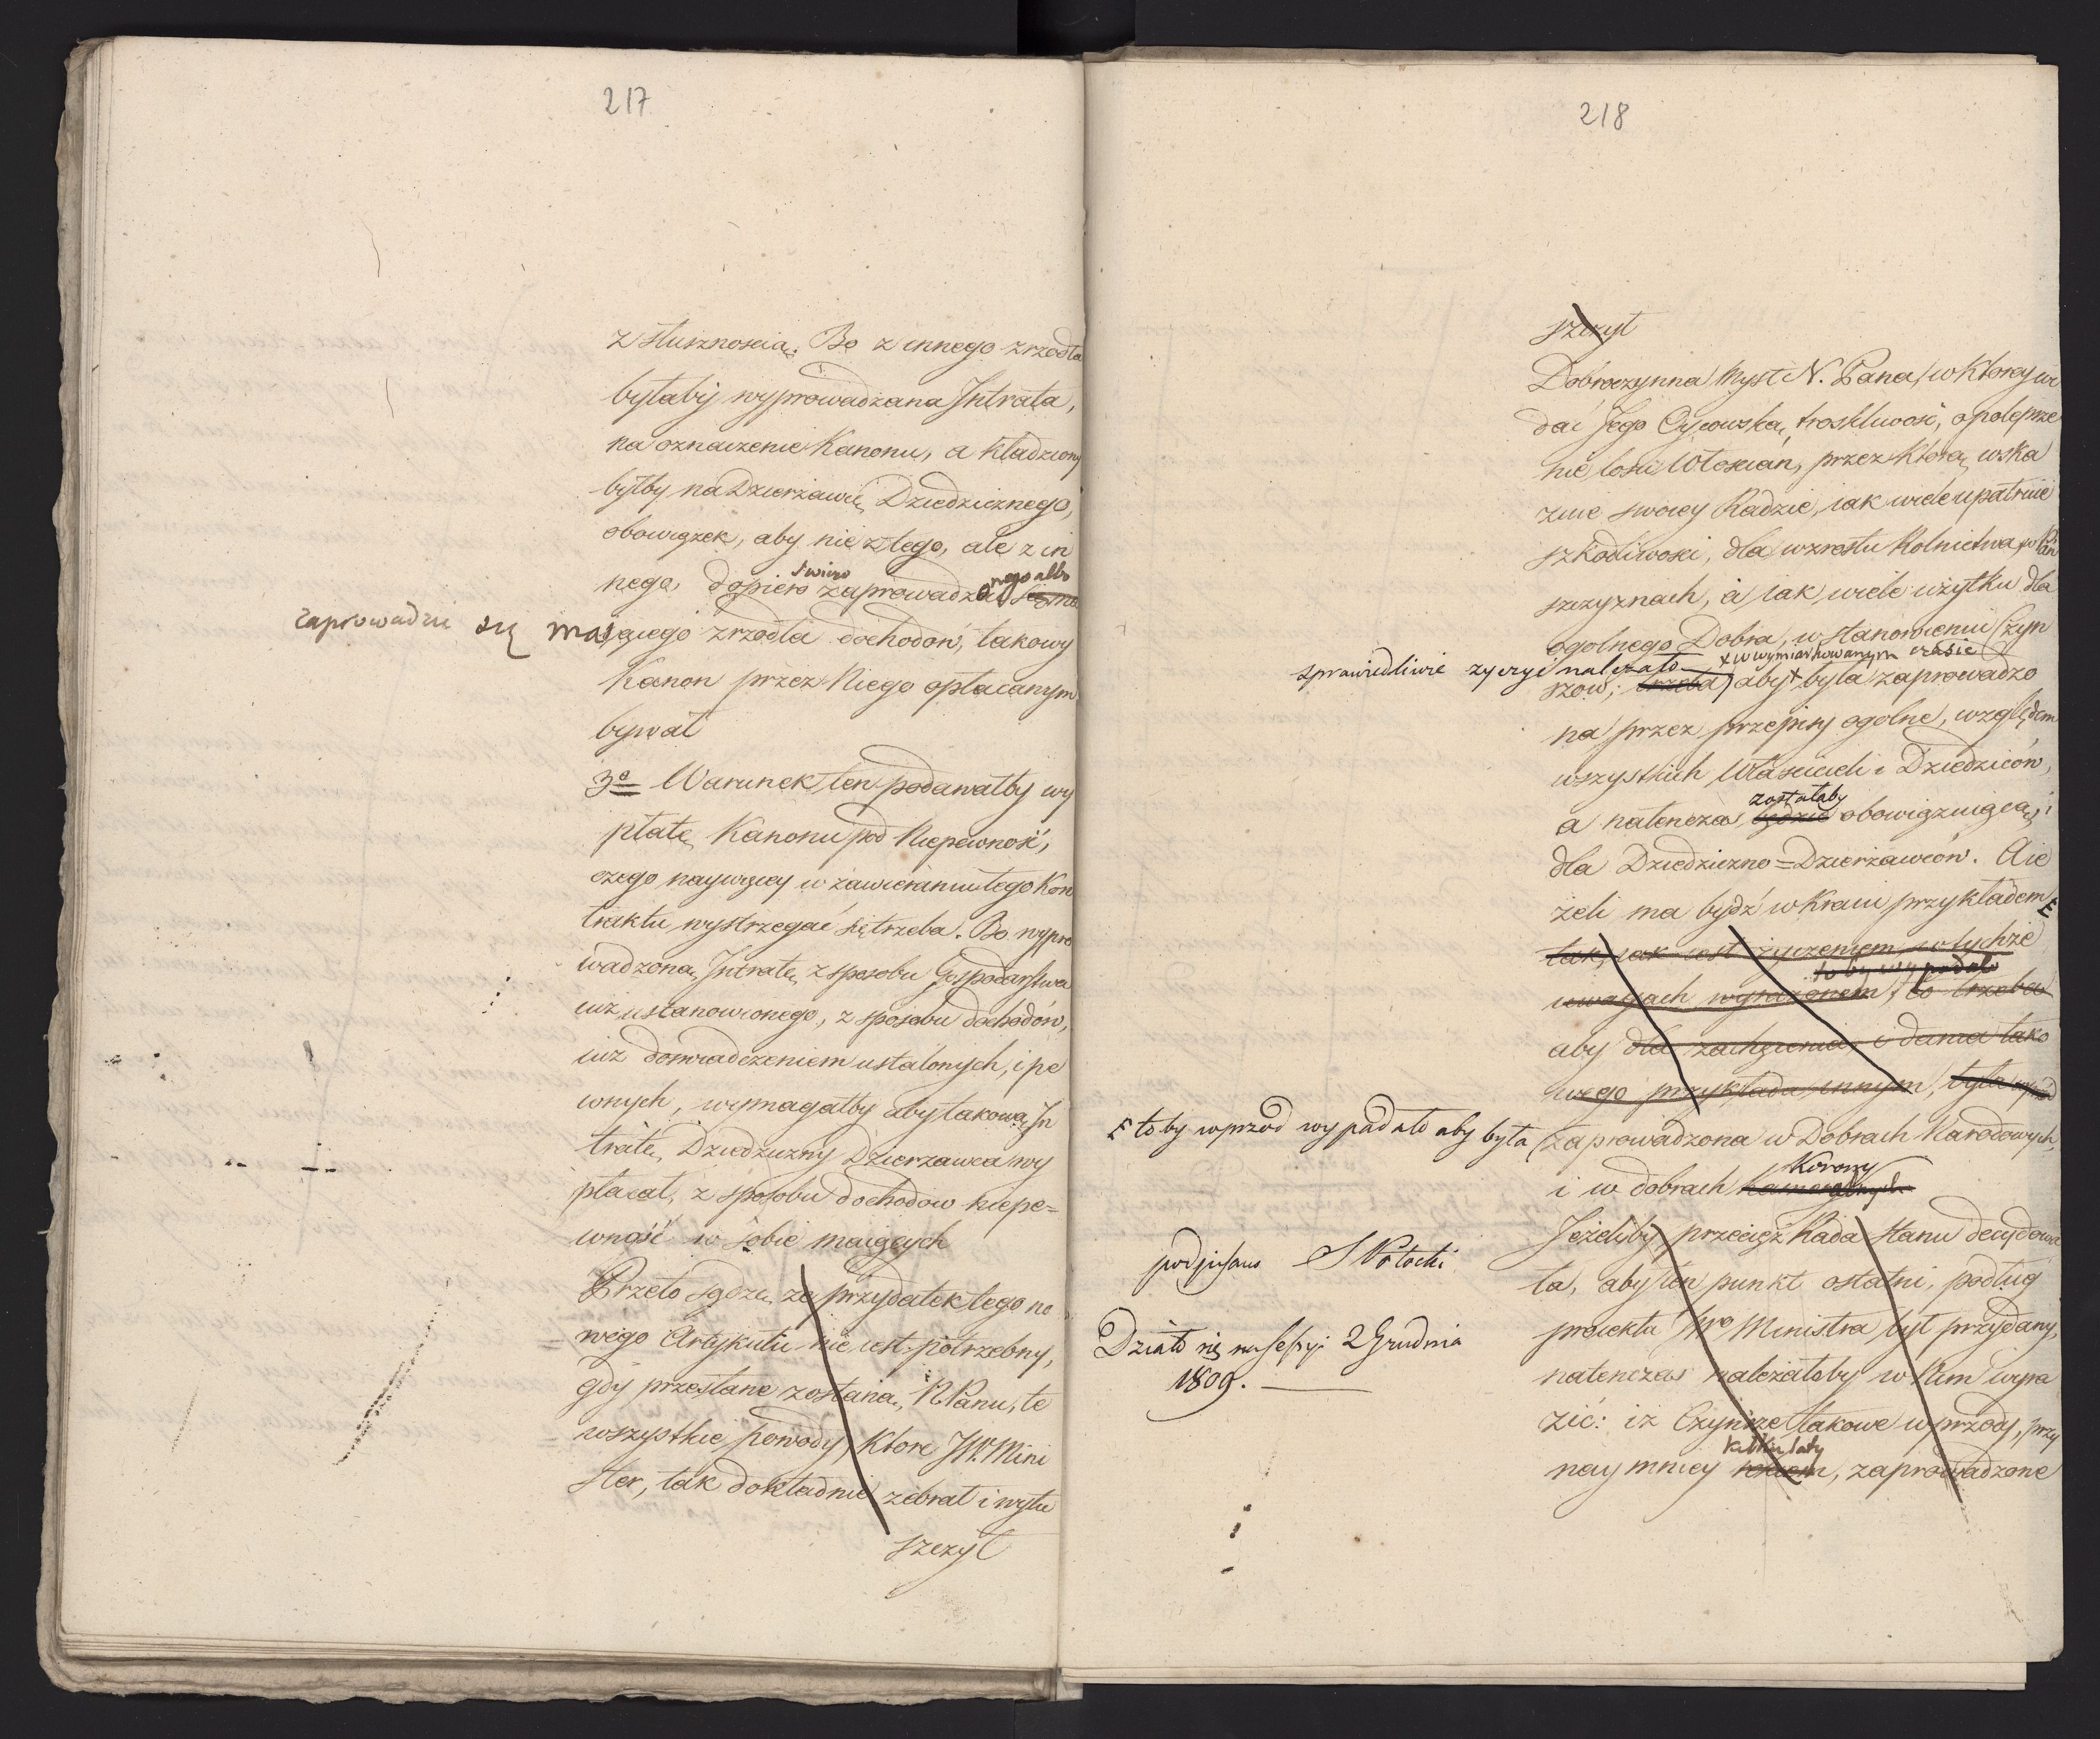 217
z słusznoscią. Bo z innego zrzodła
byłaby wyprowadzana Jntrata,
na oznaczenie Kanonu, a kładziony
byłby na Dzierżawcę Dziedzicznego,
obowiązek, aby nie z tego, ale z in
nego, dopiero świeżo zaprowadzonego albo
zaprowadzić się maiącego zrzodła dochodow, takowy
Kanon przez Niego opłacanym
bywał
3º Warunek ten podawałby wy
płatę Kanonu pod Niepewność,
czego naywięcey w zawieraniu tego Kon
traktu wystrzegać się trzeba. Bo wypro
wadzoną Jntratę z sposobu Gospodarstwa
iuż ustanowionego, z sposobu dochodów,
iuż doswiadczeniem ustalonych, i pe
wnych, wymagałby aby takową Jn
tratę, Dziedziczny Dzierzawca wy
płacał, z sposobu dochodow niepe=
wność w sobie maiących
Przeto sądzę, że przydatek tego no
wego Artykułu nie iest potrzebny,
gdy przesłane zostaną, N. Panu, te
wszystkie powody, ktore JW. Mini
ster, tak dokładnie zebrał i wyłu
szczył
218
szczył
Dobroczynna Myśl N. Pana, w ktorey wi
dać Jego Oycowską troskliwość, o polepsze
nie losu Włoscian, przez ktorą wska
zuie swoiey Radzie, iak wiele upatruie
szkodliwosci, dla wzrostu Rolnictwa, w Pań
szczyznach, a iak wiele użytku dla
ogolnego Dobra, w stanowieniu Czyn
sprawiedliwie zyczyć należało + w wymiarkowanym czasie
szow; trzeba, aby + była zaprowadzo
na przez przepisy ogolne, względem
wszystkich Właścicieli i Dziedziców,
a natenczas zostałaby będzie obowiązuiącą i
dla Dziedziczno=Dzierżawców. A ie
żeli ma bydź w Kraiu przykładem
tak, iak iest życzeniem, w tychże
toby wypadało
uwagach wyrażonem, to trzeba
aby dla zachęcenia i dania tako
wego przykładu innym, była wprzód
toby wprzod wypadało aby była zaprowadzona w Dobrach Narodowych,
i w dobrach Korony
Jeżeliby przecięż Rada Stanu decydowa
ła, aby ten punkt ostatni, podług
proiektu JWo Ministra był przydany,
natenczas należałoby w Nim wyra
zić: iż Czynsze takowe wprzody, przy
naymniey kilku laty rokiem, zaprowadzone
podpisano S Potocki
Działo się na Sessyi 2 Grudnia
1809.